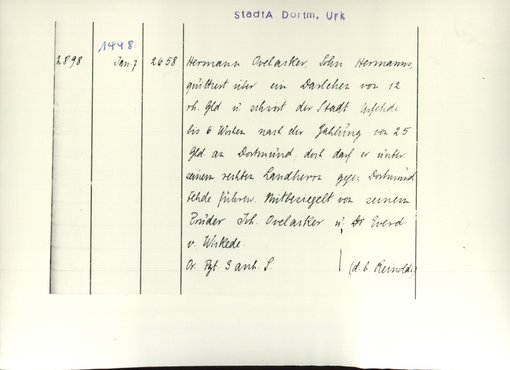 StadtA Dortm, Urk
1448
2898 Jan 7 2658 Hermann Ovelacker, Sohn Hermanns,
quittiert über ein Darlehen von 12
rh. Gld u. schwört der Stadt Urfehde
bis 6 Wochen nach der Zahlung von 25
Gld an Dortmund, doch darf er unter
seinem rechten Landherrn gegen Dortmund
Fehde führen. Mitbesiegelt von seinem
Bruder Joh. Ovelacker u. Everd
v. Wickede.
Or. Pgt. 3 anh. S. (d. b. Reinold.)